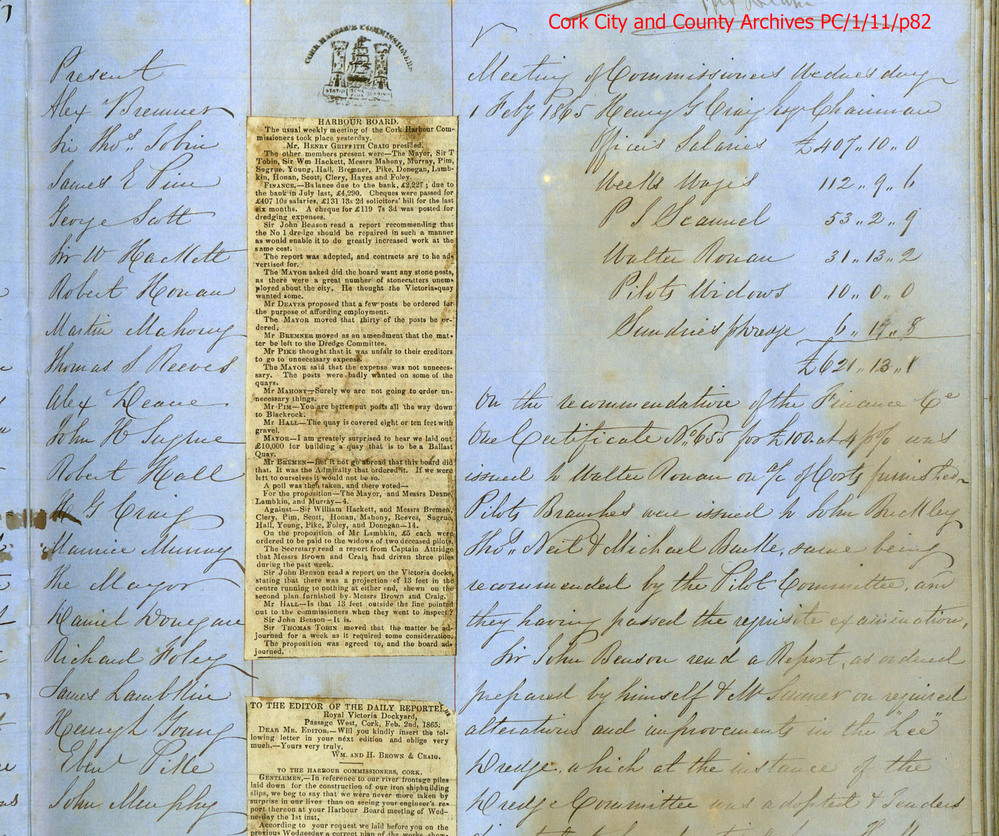 Cork City and County Archives PC/1/11/p82
Present
Alex Bremner
Sir Thos Tobin
James E Pim
George Scott
Sir W Hackett
Robert Honan
Martin Mahony
Thomas S Reeves
Alex Deane
John H Sugrue
Robert Hall
H G Craig
Maurice Murray
The Mayor
Daniel Donegan
Richard Foley
James Lambkin
Henry L Young
Eben Pike
John Murphy
CORK HARBOUR COMMISSIONERS
HARBOUR BOARD.
The usual weekly meeting of the Cork Harbour Com-
missioners took place yesterday.
Mr. HENRY GRIFFITH CRAIG presided.
The other members present were—The Mayor, Sir T
Tobin, Sir Wm Hackett, Messrs Mahony, Murray, Pim,
Sugrue, Young, Hall, Bremner, Pike, Donegan, Lamb-
kin, Honan, Scott, Clery, Hayes and Foley.
FINANCE—Balance due to the bank, £2,227; due to
the bank in July last, £4,290. Cheques were passed for
£407 10s salaries, £131 13s 2d solicitors' bill for the last
six months. A cheque for £119 7s 3d was posted for
dredging expenses.
Sir John Benson read a report recommending that
the No 1 dredge should be repaired in such a manner
as would enable it to do greatly increased work at the
same cost.
The report was adopted, and contracts are to be ad-
vertised for.
The MAYOR asked did the board want any stone posts,
as there were a great number of stonecutters unem-
ployed about the city. He thought the Victoria-quay
wanted some.
Mr DEAYES proposed that a few posts be ordered for
the purpose of affording employment.
The MAYOR moved that thirty of the posts be or-
dered.
Mr BREMNER moved as an amendment that the mat-
ter be left to the Dredge Committee.
Mr PIKE thought that it was unfair to their creditors
to go to unnecessary expense.
The MAYOR said that the expense was not unneces-
sary. The posts were badly wanted on some of the
quays.
Mr MAHONY—Surely we are not going to order un-
necessary things.
Mr PIM—You are better put posts all the way down
to Blackrock.
Mr HALL—The quay is covered eight or ten feet with
gravel.
MAYOR—I am greatly surprised to hear we laid out
£10,000 for building a quay that is to be a Ballast
Quay.
Mr BREMEN—Let it not go abroad that this board did
that. It was the Admiralty that ordered it. If we were
left to ourselves it would not be so.
A poll was then taken, and there voted—
For the proposition—The Mayor, and Messrs Deane,
Lambkin, and Murray—4.
Against—Sir William Hackett, and Messrs Bremen,
Clery, Pim, Scott, Honan, Mahony, Reeves, Sugrue,
Hall, Young, Pike, Foley, and Donegan—14.
On the proposition of Mr Lambkin, £5 each were
ordered to be paid to the widows of two deceased pilots.
The Secretary read a report from Captain Attridge
that Messrs Brown and Craig had driven three piles
during the past week.
Sir John Benson read a report on the Victoria docks,
stating that there was a projection of 13 feet in the
centre running to nothing at either end, shewn on the
second plan furnished by Messrs Brown and Craig.
Mr HALL—Is that 13 feet outside the line pointed
out to the commissioners when they went to inspect?
Sir John Benson—It is.
Sir THOMAS TOBIN moved that the matter be ad-
journed for a week as it required some consideration.
The proposition was agreed to, and the board ad-
journed.
TO THE EDITOR OF THE DAILY REPORTER
Royal Victoria Dockyard,
Passage West, Cork, Feb. 2nd, 1865.
DEAR MR. EDITOR,—Will you kindly insert the fol-
lowing letter in your next edition and oblige very
much.—Yours very truly,
WM. AND H. BROWN & CRAIG.
TO THE HARBOUR COMMISSIONERS, CORK.
GENTLEMEN,—In reference to our river frontage piles
laid down for the construction of our iron shipbuilding
slips, we beg to say that we were never more taken by
surprise in our lives than on seeing your engineer's re-
port thereon at your Harbour Board meeting of Wed-
nesday the 1st inst.
According to your request we laid before you on the
previous Wednesday a correct plan of the works show-
Meeting of Commissioners Wednesday
1 Feby 1865 Henry G Craig Esq Chairman
Officers Salaries £407 " 10 " 0
Weeks Wages 112 " 9 " 6
P S Scannel 53 " 2 " 9
Walter Ronan 31 " 13 " 2
Pilots Widows 10 " 0 " 0
Sundries pr Dredge 6 " 17 " 8
£621 " 13 " 1
On the recommendation of the Finance Ce
One Certificate No 655 for £100 at 4 % was
issued to Walter Ronan on a/c of Costs furnished
Pilots Branches were issued to John Buckley
Thos Neil & Michael Burke, same being
recommended by the Pilot Committee, and
they having passed the requisite examination,
Sir John Benson read a Report, as ordered
prepared by himself & Mr on required
alterations and improvements in the "Lee"
Dredge, which at the instance of the
Dredge Committee was adopted & Tenders